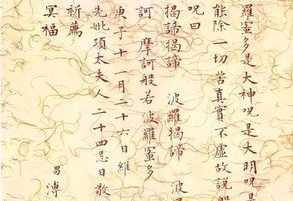 羅蜜多是大神呪是大明呪是
能除一切苦真實不虛故說般
呪曰
揭諦揭諦 波羅揭諦 波
訶 摩訶般若波羅蜜多
庚子十一月二十六日維
先妣項太夫人二十四忌日敬
祈薦
冥福
易漙